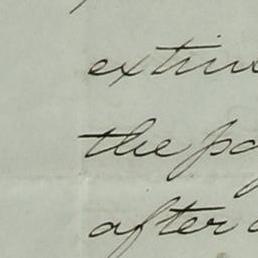 extin
the pa
after